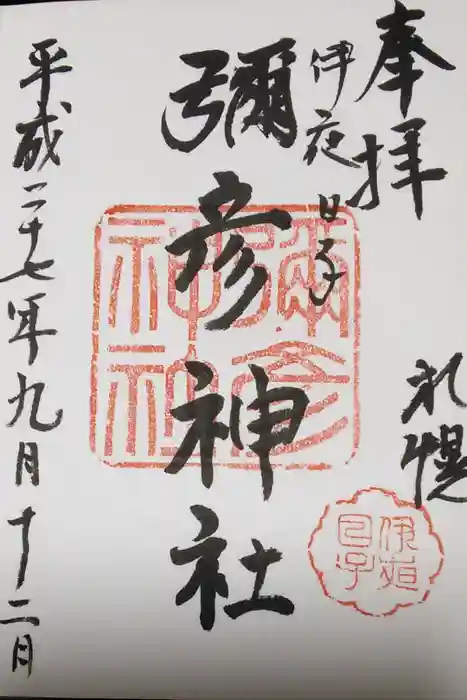 奉拝
札幌
伊夜日子
彌彦神社
平成二十七年九月十二日
彌彦
神社